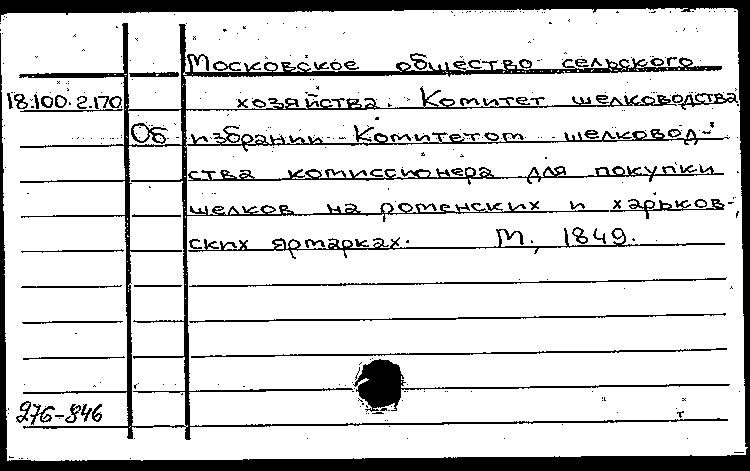 Московское общество сельского
18.100.2.170 хозяйства. Комитет шелководства
Об избрании Комитетом шелковод-
ства комиссионера для покупки
шелков на роменских и харьков-
ских ярмарках. М., 1849.
276-846